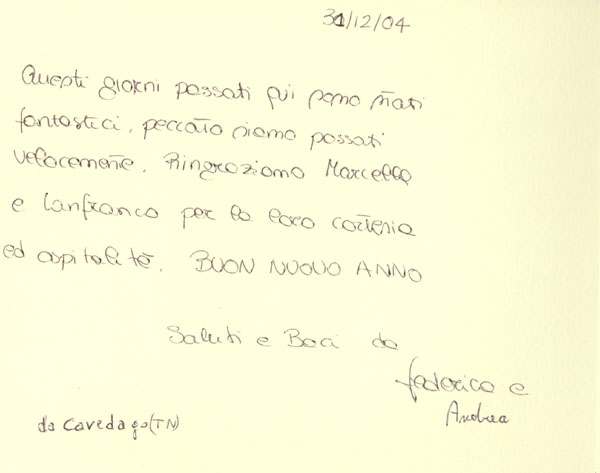 31/12/04
Questi giorni passati qui sono stati
fantastici, peccato siamo passati
velocemente. Ringraziamo Marcello
e Lanfranco per la loro cortesia
ed ospitalità. BUON NUOVO ANNO
Saluti e Baci da
Federico e
Andrea
da Cavedago (TN)